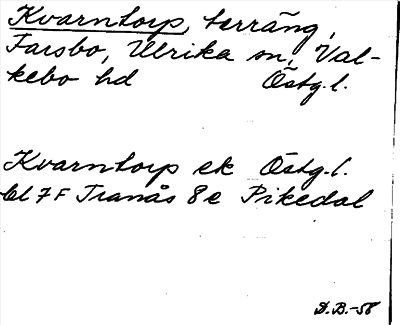 Kvarntorp, terräng,
Farsbo, Ulrika sn, Val-
kebo hd Östg.l.
Kvarntorp ek Östg.l.
bl 7F Tranås 8e Pikedal
D.B.-58